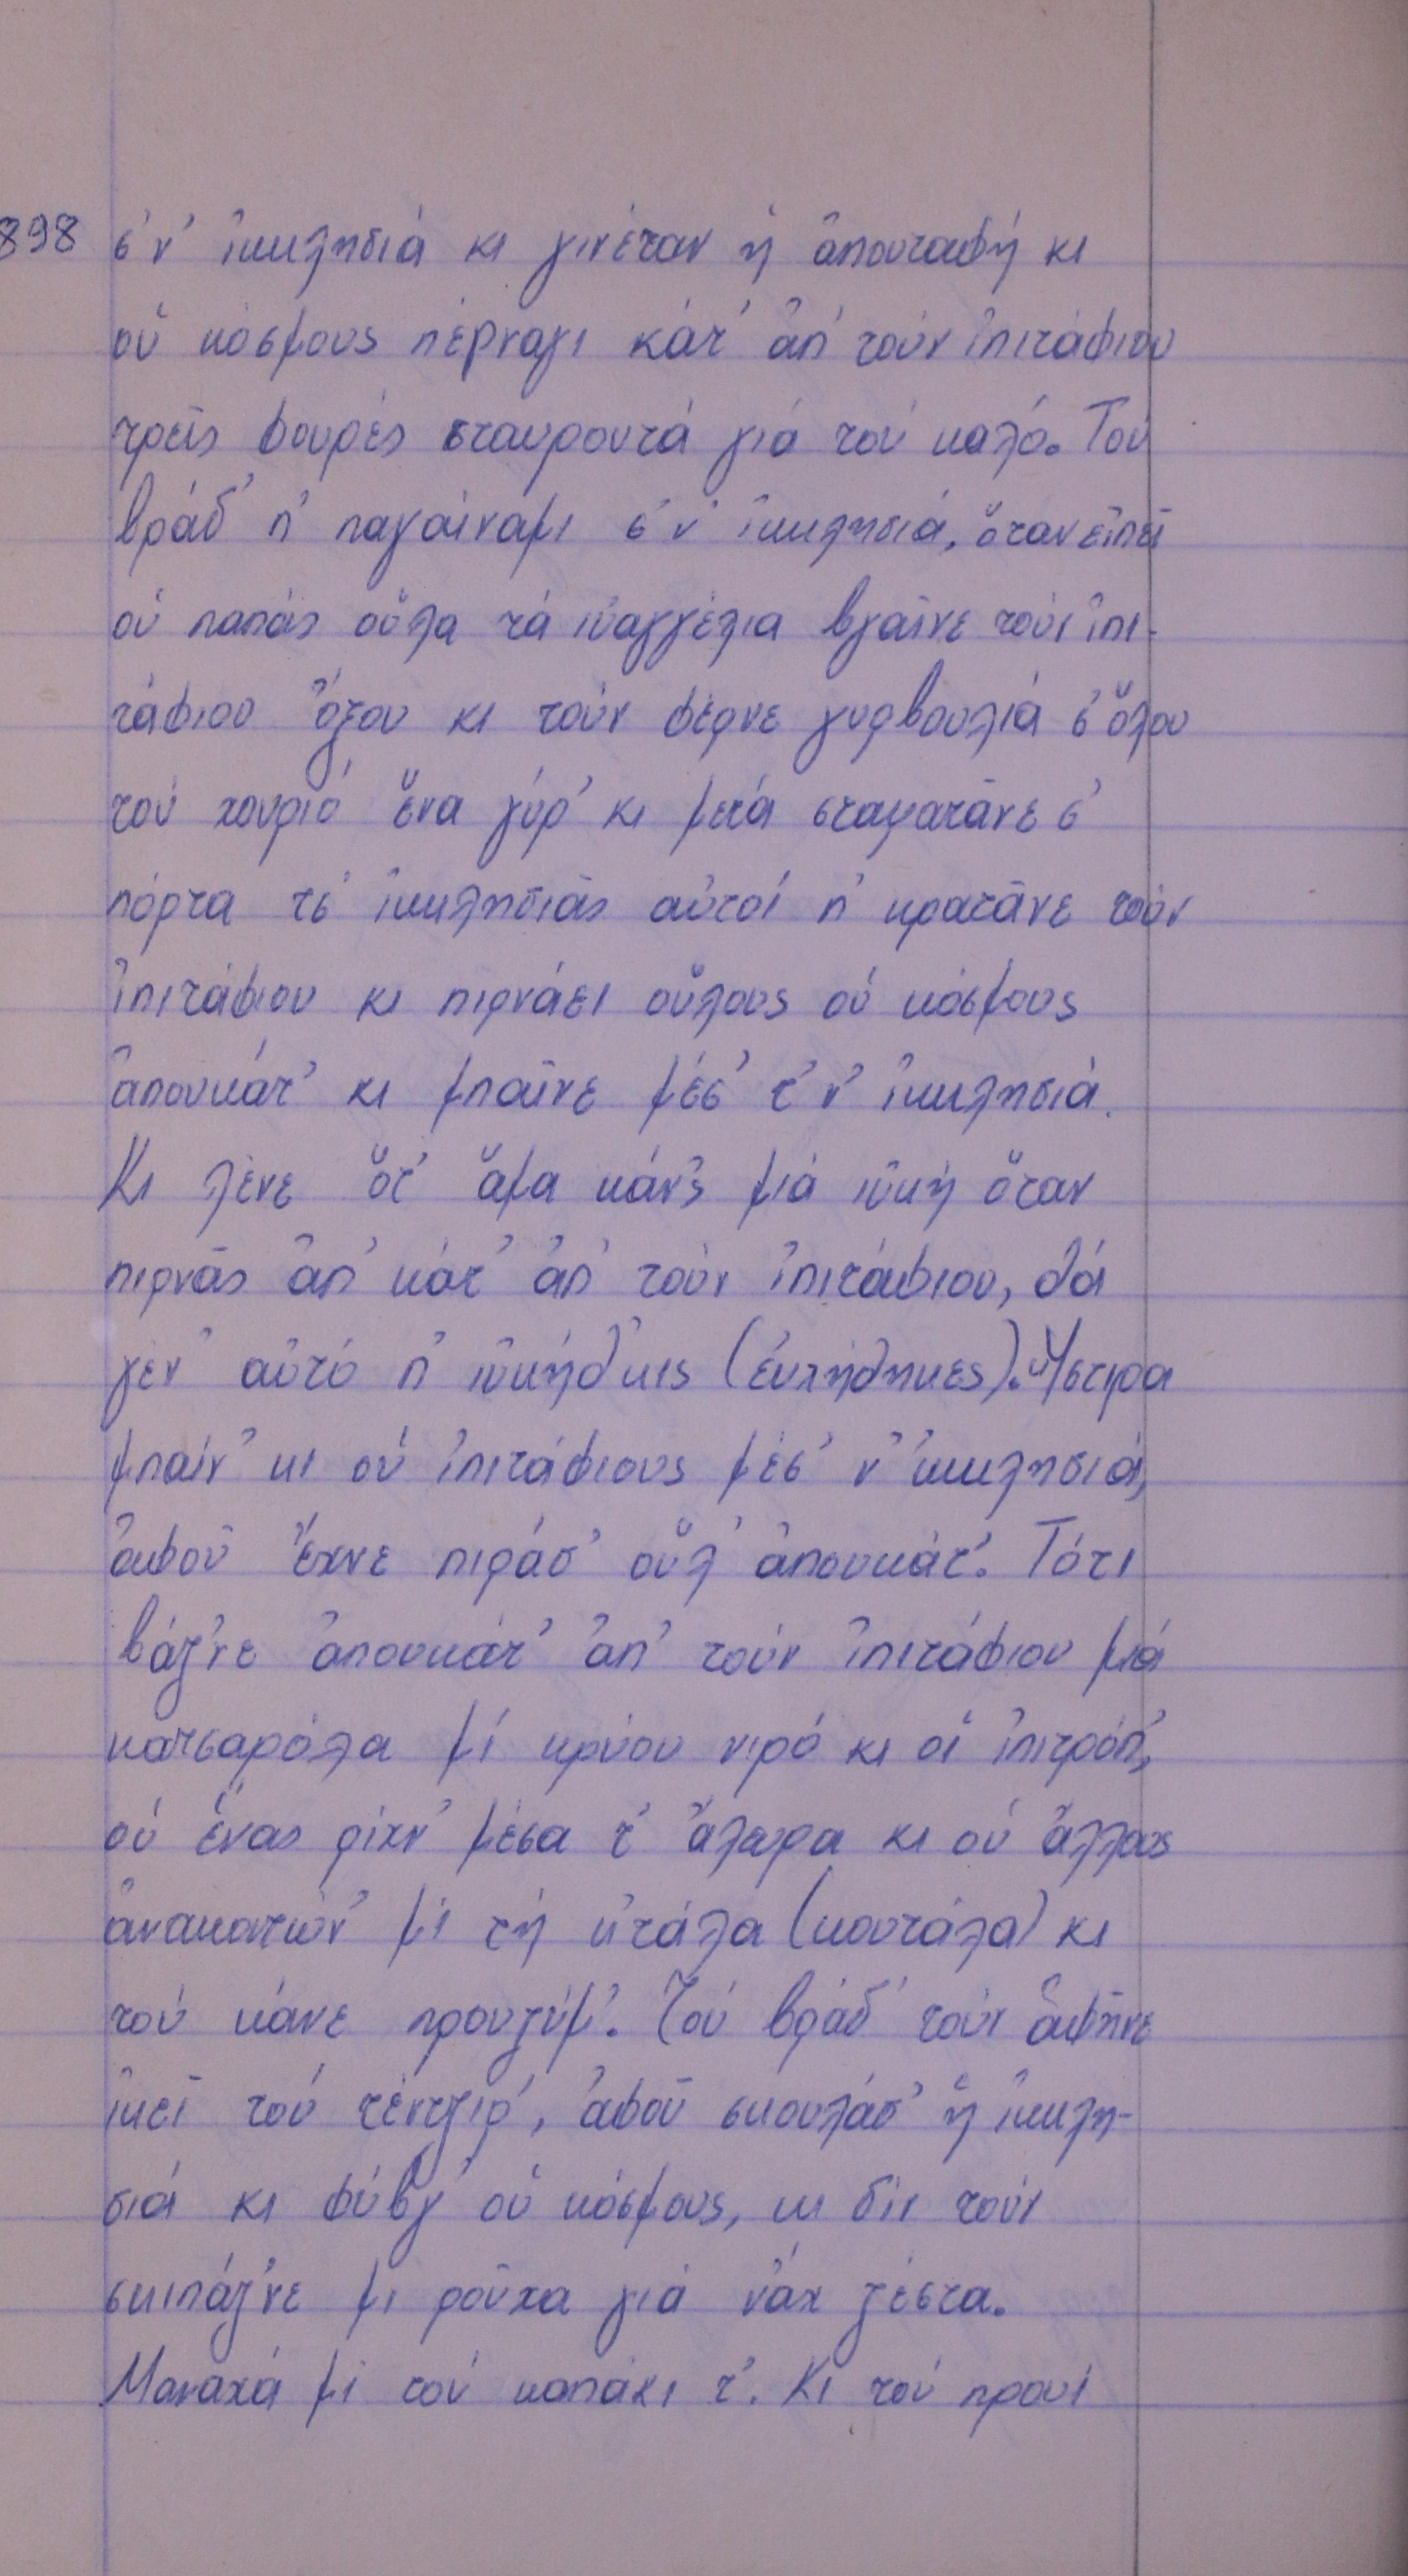 898 σ' ν' ἰκκλησιά κι γινέταν ἡ ἀπουταφή κι
οὑ κόσμους πέρναγι κάτ' ἀπ' τούν ἰπιτάφιου
τρεῖς φουρές σταυρουτά γιά τού καλό. Τού
βράδ' π' παγαίναμι σ' ν' ἰκκλησιά, ὅταν εἰπεῖ
οὑ παπάς οὕλα τά ιὐαγγέλια βγαῖνε τούν ἰπι-
τάφιου ὄξου κι τούν φέρνε γυρβουλιά σ' ὅλου
τού χουριό ἕνα γύρ' κι μετά σταματᾶνε σ'
πόρτα τσ' ἰκκλησιᾶς αὐτοί π' κρατᾶνε τούν
ἰπιτάφιου κι πιρνάει οὕλους οὑ κόσμους
ἀπουκάτ' κι μπαῖνε μέσ' τ' ν' ἰκκλησιά.
Κι λένε ὅτ' ἅμα κάν'ς μιά ιὐκή ὅταν
πιρνᾶς ἀπ' κάτ' ἀπ' τούν ἰπιτάφιου, θά
γέν' αὐτό π' ιὐκήθ'κις (εὐχήθηκες). Ὕστιρα
μπαίν' κι οὑ ἰπιτάφιους μέσ' ν' ἰκκλησιά,
ἀφοῦ ἔχνε πιράσ' οὕλ' ἀπουκάτ'. Τότι
βάζ'νε ἀπουκάτ' ἀπ' τούν ἰπιτάφιου μιά
κατσαρόλα μί κρύου νιρό κι οἱ ἰπιτρόπ',
οὑ ἕνας ρίχν' μέσα τ' ἄλευρα κι οὑ ἄλλους
ἀνακατών' μί τή κ'τάλα (κουτάλα) κι
τού κάνε προυζύμ'. Τού βράδ' τούν ἀφῆνε
ἰκεῖ τού τέντζιρ', ἀφοῦ σκουλάσ' ἡ ἰκκλη-
σιά κι φύβγ' οὑ κόσμους, κι δέν τούν
σκιπάζ'νε μι ροῦχα γιά νἄχ ζέστα.
Μαναχά μί τού καπάκι τ'. Κι τού προυί